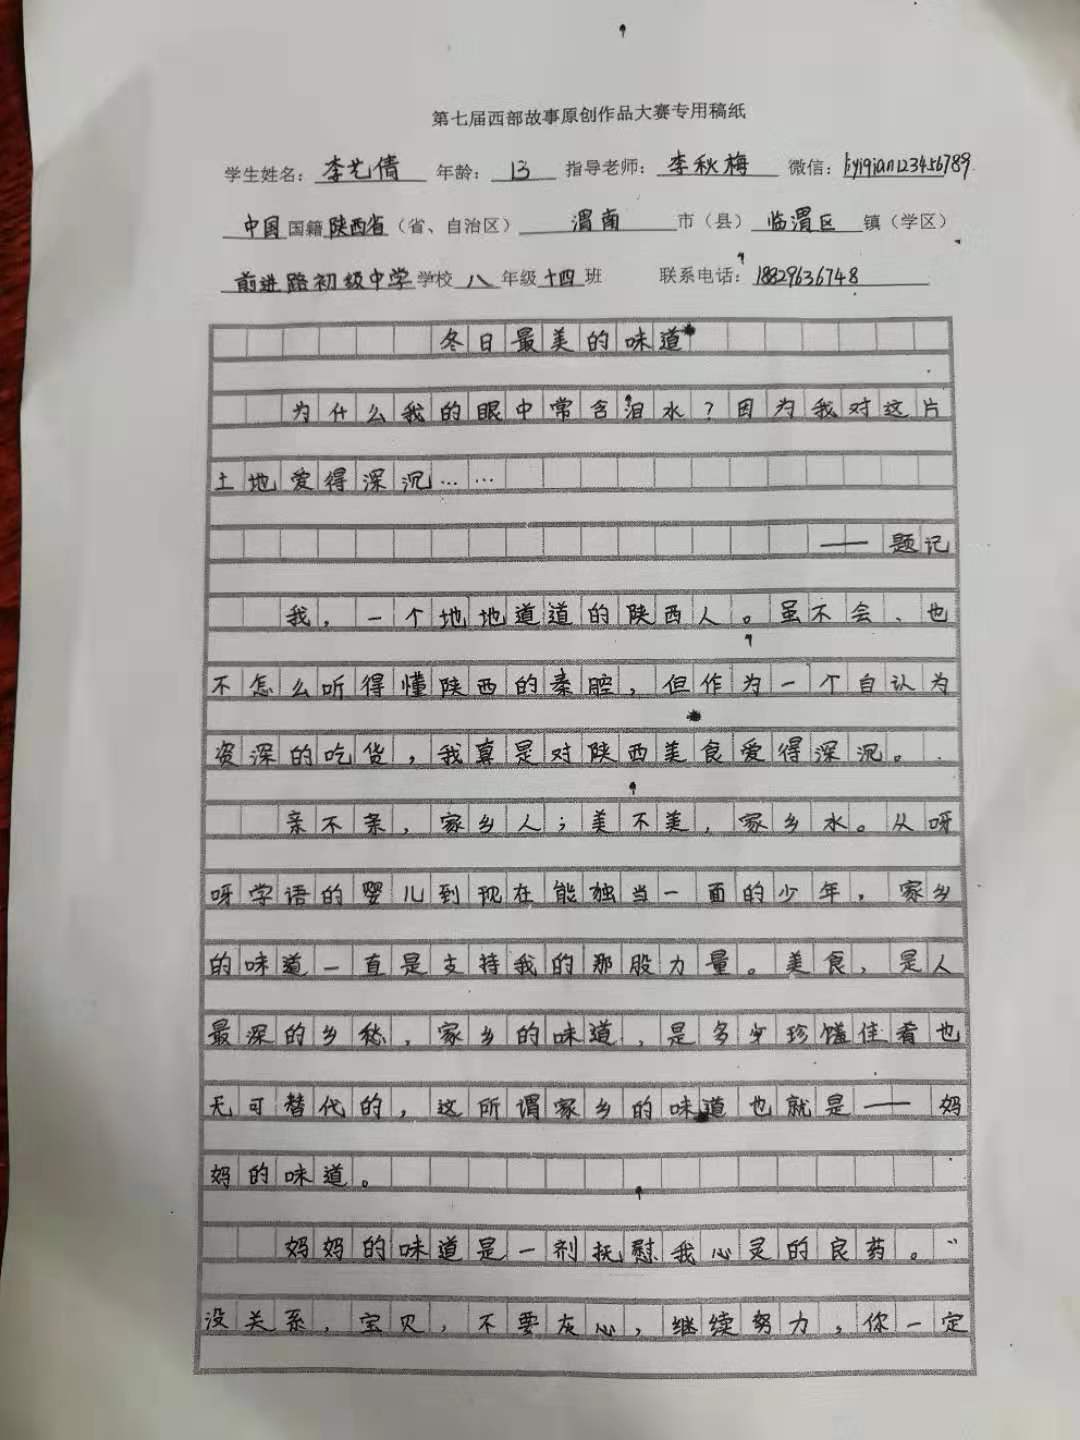 第七届西部故事原创作品大赛专用稿纸
学生姓名：李艺倩 年龄：13 指导老师：李秋梅 微信：liyiqian123456789
中国国籍陕西省（省、自治区）渭南市（县）临渭区镇（学区）
前进路初级中学学校八年级十四班 联系电话：18829636748
冬日最美的味道
为什么我的眼中常含泪水？因为我对这片
土地爱得深沉……
——题记
我，一个地地道道的陕西人。虽不会、也
不怎么听得懂陕西的秦腔，但作为一个自认为
资深的吃货，我真是对陕西美食爱得深沉。
亲不亲，家乡人；美不美，家乡水。从呀
呀学语的婴儿到现在能独当一面的少年，家乡
的味道一直是支持我的那股力量。美食，是人
最深的乡愁，家乡的味道，是多少珍馐佳肴也
无可替代的，这所谓家乡的味道也就是——妈
妈的味道。
妈妈的味道是一剂抚慰我心灵的良药。“
没关系，宝贝，不要灰心，继续努力，你一定